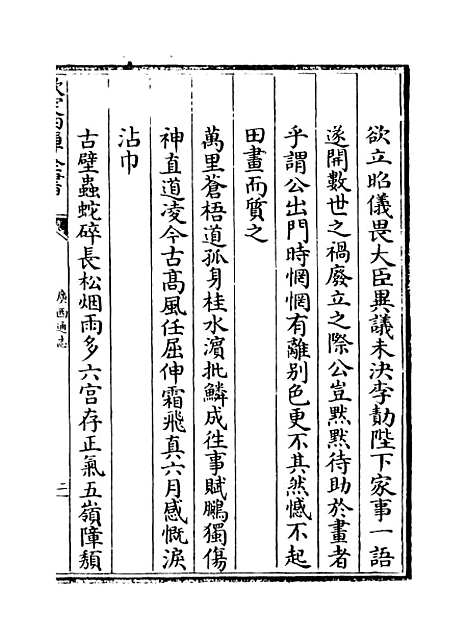 欲立昭儀畏大臣異議未決李勣陛下家事一語
遂開數世之禍廢立之際公豈黙黙待助於畫者
乎謂公出門時惘惘有離别色更不其然憾不起
田畫而質之
萬里蒼梧道孤身桂水濵批鱗成徃事賦鵬獨傷
神直道凌今古髙風任屈伸霜飛真六月感慨淚
沾巾
古壁蟲蛇碎長松烟雨多六宫存正氣五嶺障頽
欽定四庫全書
廣西通志
二